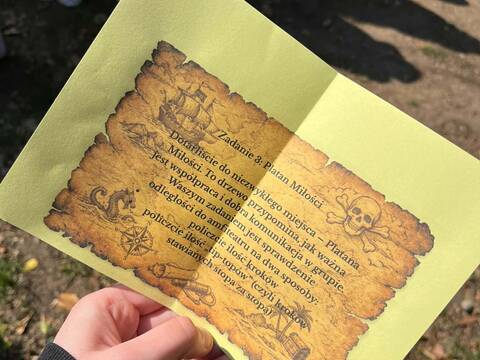 Zadanie 3: Platan Miłości
Dotarliście do niezwykłego miejsca – Platana
Miłości. To drzewo przypomina, jak ważna
jest współpraca i dobra komunikacja w grupie.
Waszym zadaniem jest sprawdzenie
odległości do amfiteatru na dwa sposoby:
policzcie ilość kroków
policzcie ilość „tip-topów” (czyli kroków
stawianych stopa za stopą)